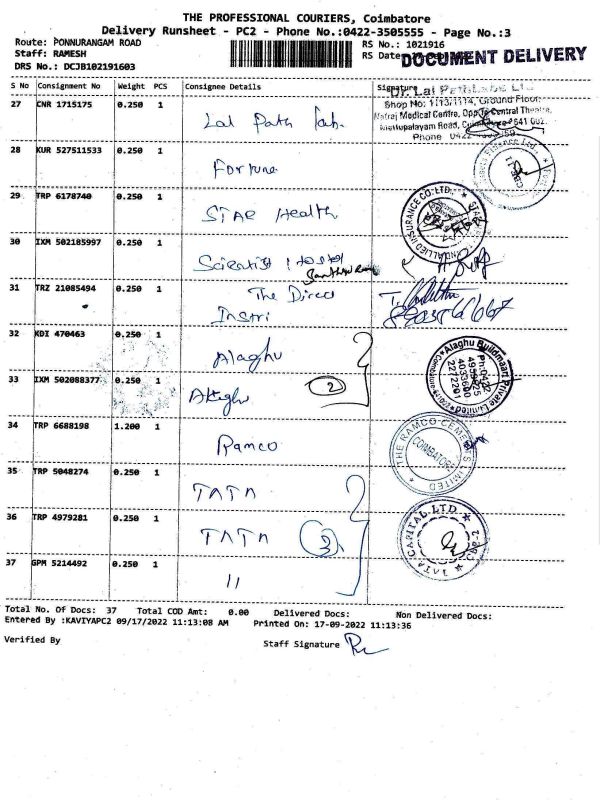 THE PROFESSIONAL COURIERS, Coimbatore
Delivery Runsheet - PC2 - Phone No.:0422-3505555 - Page No.:3
Route: PONNURANGAM ROAD
Staff: RAMESH
DRS No.: DCJB102191603
RS No.: 1021916
RS Date
DOCUMENT DELIVERY
S No Consignment No Weight PCS Consignee Details Signature
27 CNR 1715175 0.250 1 Lal Path Lab.
Dr. Lal PathLabs Ltd
Shop No: 1113/1114, Ground Floor,
Medical Centre, Opp to Central Theatre,
Road, 641 002.
Phone
28 KUR 527511533 0.250 1 Fortune
29 TRP 6178740 0.250 1 STAR Health
30 IXM 502185997 0.250 1 Scientist
31 TRZ 21085494 0.250 1 The Direc
Insti
32 KDI 470463 0.250 1 Alaghu
33 IXM 502088377 0.250 1 2
Alaghu Buildmaart Private Limited
Ph:0422
34 TRP 6688198 1.200 1 Ramco
THE RAMCO CEMENTS LIMITED
COIMBATORE
35 TRP 5048274 0.250 1 TATA
36 TRP 4979281 0.250 1 TATA 3
TATA CAPITAL LTD
37 GPM 5214492 0.250 1 11
Total No. Of Docs: 37 Total COD Amt: 0.00 Delivered Docs: Non Delivered Docs:
Entered By :KAVIYAPC2 09/17/2022 11:13:08 AM Printed On: 17-09-2022 11:13:36
Verified By Staff Signature